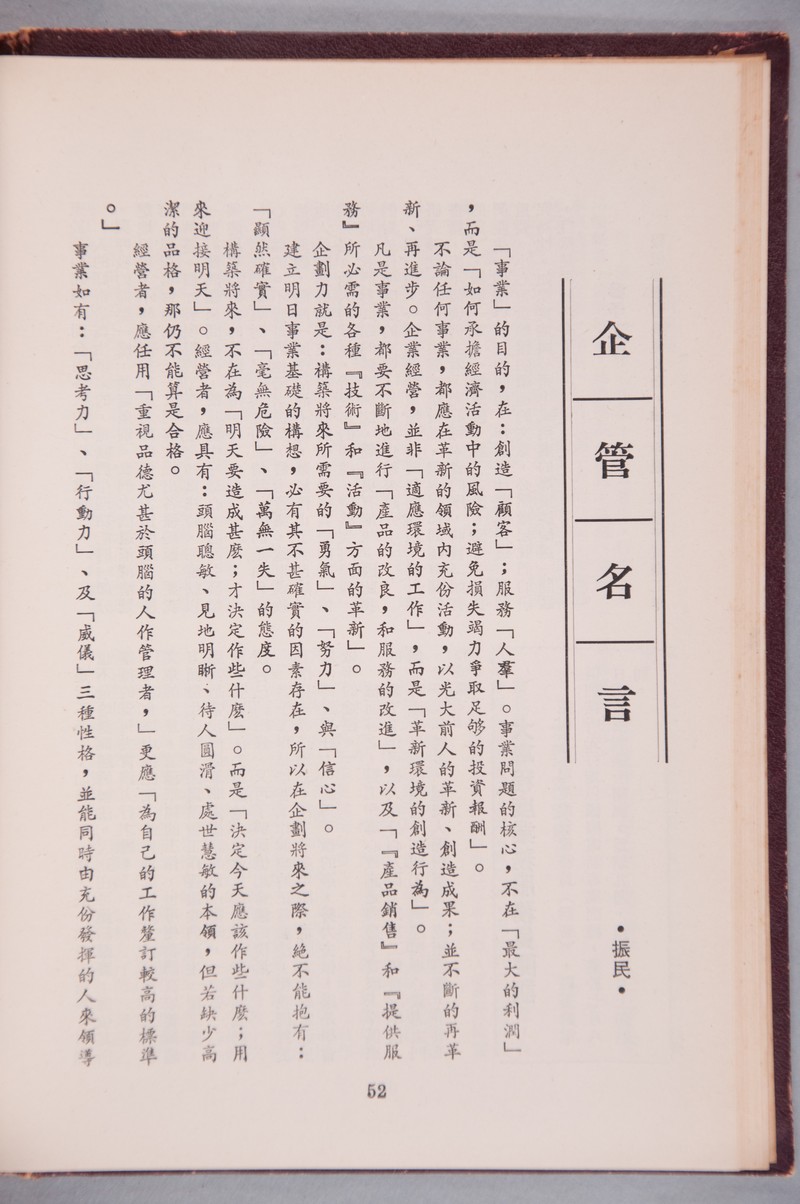 企管名言
•振民•
「事業」的目的，在：創造「顧客」；服務「人羣」。事業問題的核心，不在「最大的利潤」
，而是「如何承擔經濟活動中的風險；避免損失竭力爭取足够的投資報酬」。
不論任何事業，都應在革新的領域內充份活動，以光大前人的革新、創造成果；並不斷的再革
新、再進步。企業經營，並非「適應環境的工作」，而是「革新環境的創造行為」。
凡是事業，都要不斷地進行「產品的改良，和服務的改進」，以及「『產品銷售』和『提供服
務』所必需的各種『技術』和『活動』方面的革新」。
企劃力就是：構築將來所需要的「勇氣」、「努力」、與「信心」。
建立明日事業基礎的構想，必有其不甚確實的因素存在，所以在企劃將來之際，絕不能抱有：
「顯然確實」、「毫無危險」、「萬無一失」的態度。
構築將來，不在為「明天要造成甚麽；才決定作些什麽」。而是「決定今天應該作些什麽；用
來迎接明天」。經營者，應具有：頭腦聰敏、見地明晰、待人圓滑、處世慧敏的本領，但若缺少高
潔的品格，那仍不能算是合格。
經營者，應任用「重視品德尤甚於頭腦的人作管理者，」更應「為自己的工作釐訂較高的標準
。」
事業如有：「思考力」、「行動力」、及「威儀」三種性格，並能同時由充份發揮的人來領導
52